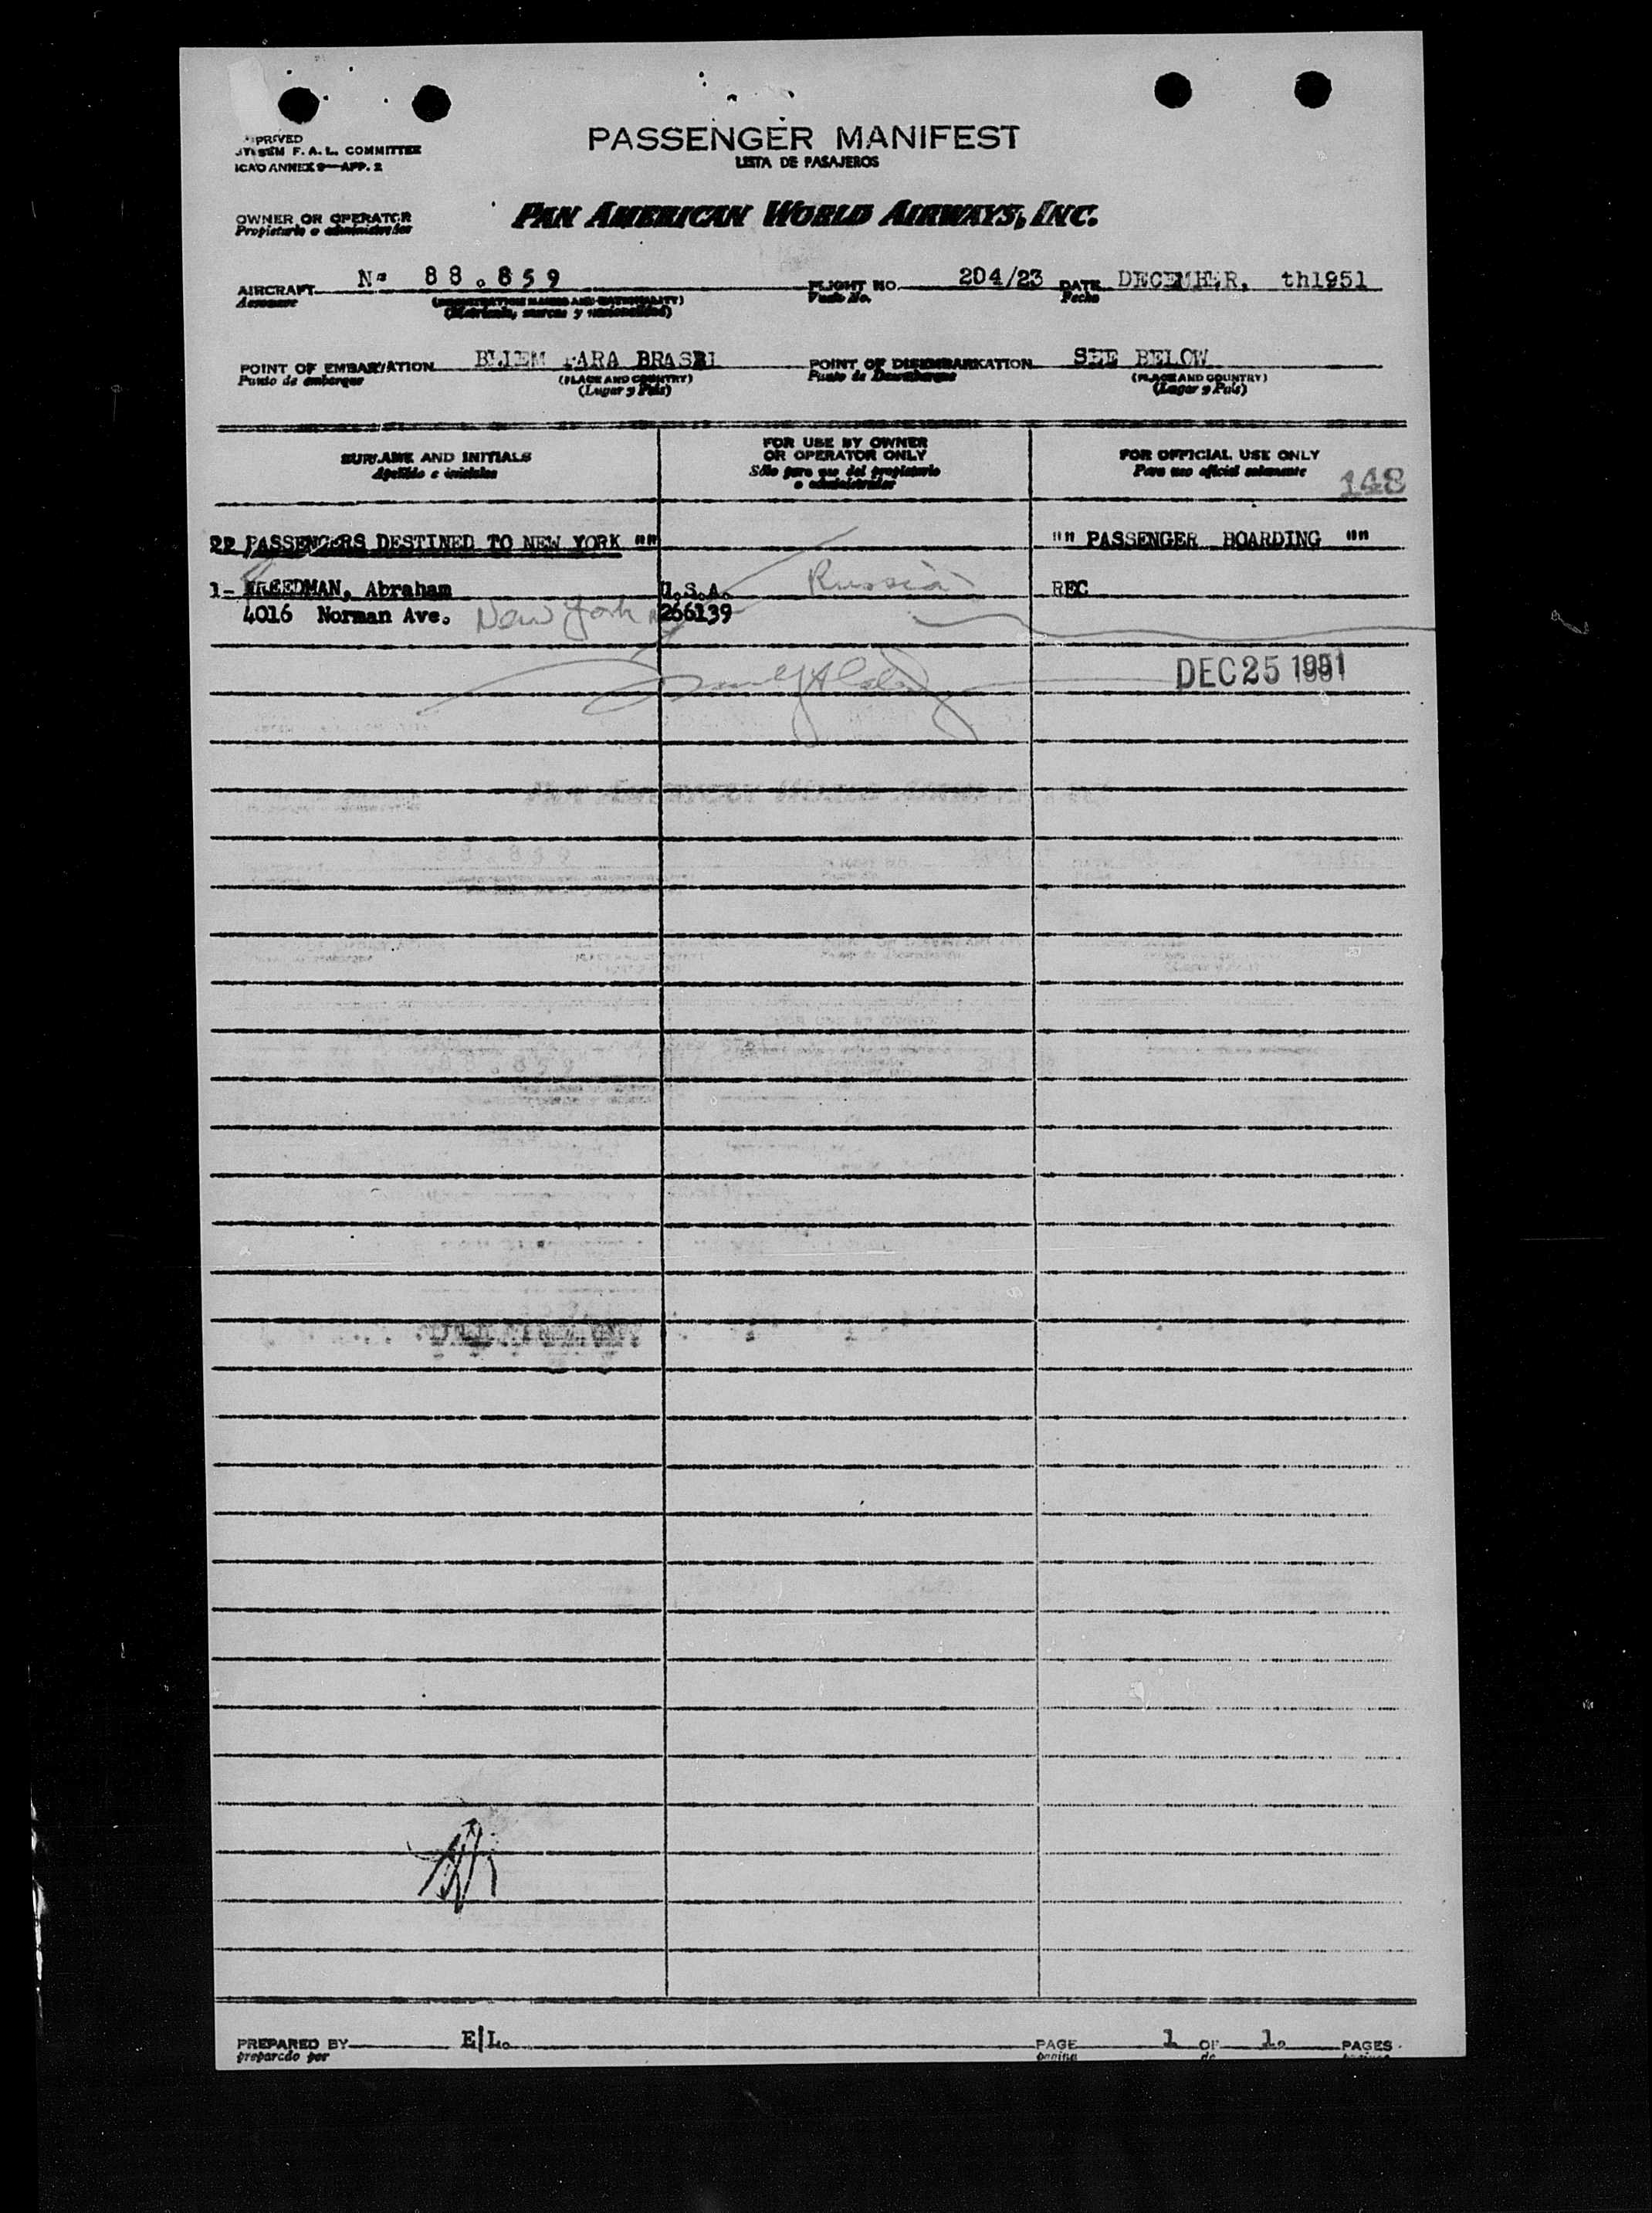 PASSENGER MANIFEST
LISTA DE PASAJEROS
F. A. L. COMMITTEE
ICAO ANNEX 9—APP. 2
OWNER OR OPERATOR
Propietario o administrador
PAN AMERICAN WORLD AIRWAYS, INC.
AIRCRAFT Nº 88.859 FLIGHT NO. 204/23 DATE DECEMBER, th1951
Aeronave Vuelo No. Fecha
(Matrícula, marcas y nacionalidad)
POINT OF EMBARKATION PARA POINT OF DISEMBARKATION SEE BELOW
Punto de embarque (PLACE AND COUNTRY) Punto de Desembarque (PLACE AND COUNTRY)
(Lugar y País) (Lugar y País)
SURNAME AND INITIALS FOR USE BY OWNER OR OPERATOR ONLY FOR OFFICIAL USE ONLY
Apellido e iniciales Sólo para uso del propietario o administrador Para uso oficial solamente
148
"" PASSENGERS DESTINED TO NEW YORK "" "" PASSENGER BOARDING ""
1- FREEDMAN, Abraham U.S.A. Russia REC
4016 Norman Ave. New York 266139
DEC 25 1951
PREPARED BY E|L. PAGE 1 OF 1. PAGES
preparado por pagina de